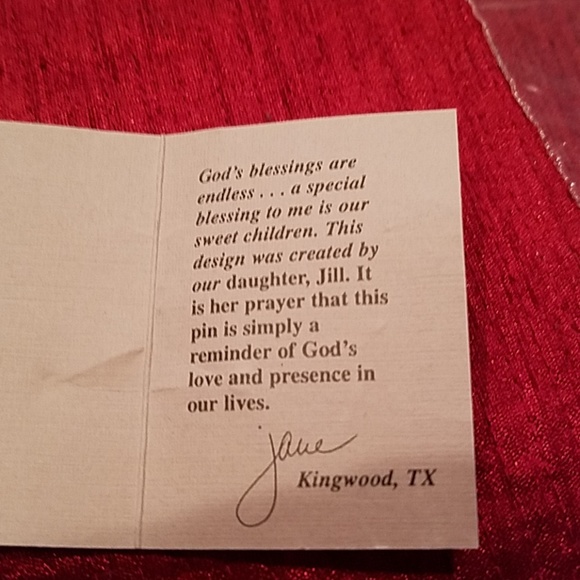 God's blessings are
endless . . . a special
blessing to me is our
sweet children. This
design was created by
our daughter, Jill. It
is her prayer that this
pin is simply a
reminder of God's
love and presence in
our lives.
Jane
Kingwood, TX